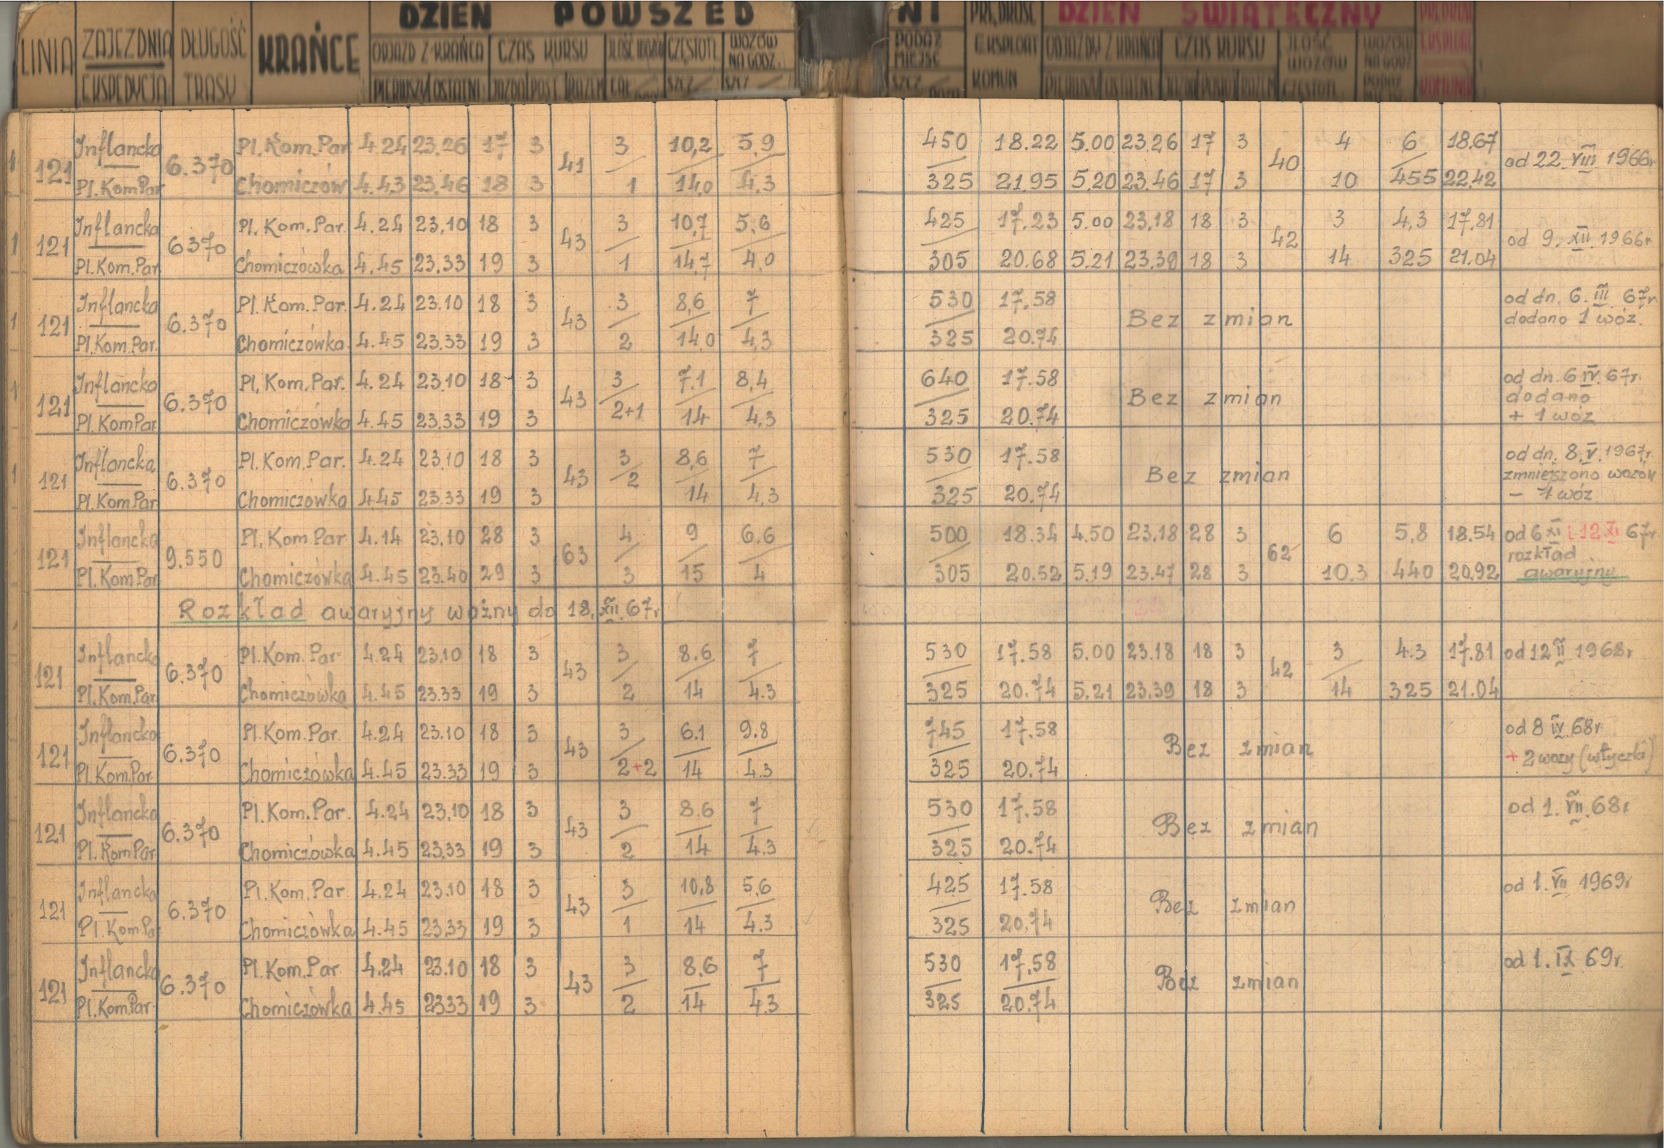 DZIEŃ POWSZED NI DZIEŃ ŚWIĄTECZNY
LINIA ZAJEZDNIA DŁUGOŚĆ KRAŃCE ODJAZD Z KRAŃCA CZAS KURSU CZĘSTOTL. WOZÓW NA GODZ. PODAŻ MIEJSC EKSPLOAT ODJAZDY Z KRAŃCA CZAS KURSU ILOŚĆ WOZÓW WOZÓW NA GODZ
EKSPEDYCJA TRASY PIERWSZY OSTATNI SZCZ SZCZ KOMUN CZĘSTOTL.
Inflancka Pl. Kom. Par 4.24 23.26 17 3 3 10,2 5,9 450 18.22 5.00 23.26 17 3 4 6 18.67
121 6.370 41 40 od 22. VIII 1966r
Pl. Kom Par Chomiczów 4.43 23.46 18 3 1 14,0 4,3 325 21.95 5.20 23.46 17 3 10 455 22.42
Inflancka Pl. Kom. Par. 4.24 23.10 18 3 3 10,7 5,6 425 17.23 5.00 23.18 18 3 3 4,3 17.81
121 6370 43 42 od 9. XII. 1966r
Pl. Kom. Par Chomiczówka 4.45 23.33 19 3 1 14,7 4,0 305 20.68 5.21 23.39 18 3 14 325 21.04
Inflancka Pl. Kom. Par. 4.24 23.10 18 3 3 8,6 7 530 17.58 od dn. 6. III 67r.
121 6.370 43 Bez zmian dodano 1 wóz.
Pl. Kom. Par. Chomiczówka 4.45 23.33 19 3 2 14,0 4,3 325 20.74
Inflancka Pl. Kom. Par. 4.24 23.10 18 3 3 7.1 8,4 640 17.58 od dn. 6 IV. 67r.
121 6.370 43 Bez zmian dodano
Pl. Kom Par Chomiczówka 4.45 23.33 19 3 2+1 14 4,3 325 20.74 + 1 wóz
Inflancka Pl. Kom. Par. 4.24 23.10 18 3 3 8,6 7 530 17.58 od dn. 8. V. 1967r.
121 6.370 43 Bez zmian zmniejszono wozów
Pl. Kom Par Chomiczówka 4.45 23.33 19 3 2 14 4,3 325 20.74 - 1 wóz
Inflancka Pl. Kom Par 4.14 23.10 28 3 4 9 6,6 500 18.34 4.50 23.18 28 3 6 5,8 18.54 od 6 XI i 12 XI 67r
121 9.550 63 62 rozkład
Pl. Kom Par Chomiczówka 4.45 23.40 29 3 3 15 4 305 20.52 5.19 23.47 28 3 10.3 440 20.92 awaryjny
Rozkład awaryjny ważny do 18. XII. 67r
Inflancka Pl. Kom. Par. 4.24 23.10 18 3 3 8.6 7 530 17.58 5.00 23.18 18 3 3 4.3 17.81 od 12 II 1968r
121 6.370 43 42
Pl. Kom. Par. Chomiczówka 4.45 23.33 19 3 2 14 4.3 325 20.74 5.21 23.39 18 3 14 325 21.04
Inflancka Pl. Kom. Par. 4.24 23.10 18 3 3 6.1 9.8 745 17.58 od 8 IV 68r
121 6.370 43 Bez zmian + 2 wozy (wtyczki)
Pl. Kom. Par Chomiczówka 4.45 23.33 19 3 2+2 14 4.3 325 20.74
Inflancka Pl. Kom. Par. 4.24 23.10 18 3 3 8.6 7 530 17.58 od 1. VII. 68r
121 6.370 43 Bez zmian
Pl. Kom Par. Chomiczówka 4.45 23.33 19 3 2 14 4.3 325 20.74
Inflancka Pl. Kom. Par. 4.24 23.10 18 3 3 10,8 5,6 425 17.58 od 1. VII 1969r
121 6.370 43 Bez zmian
Pl. Kom. Pa Chomiczówka 4.45 23.33 19 3 1 14 4.3 325 20.74
Inflancka Pl. Kom. Par. 4.24 23.10 18 3 3 8,6 7 530 17.58 od 1. IX 69r.
121 6.370 43 Bez zmian
Pl. Kom Par. Chomiczówka 4.45 23.33 19 3 2 14 4.3 325 20.74